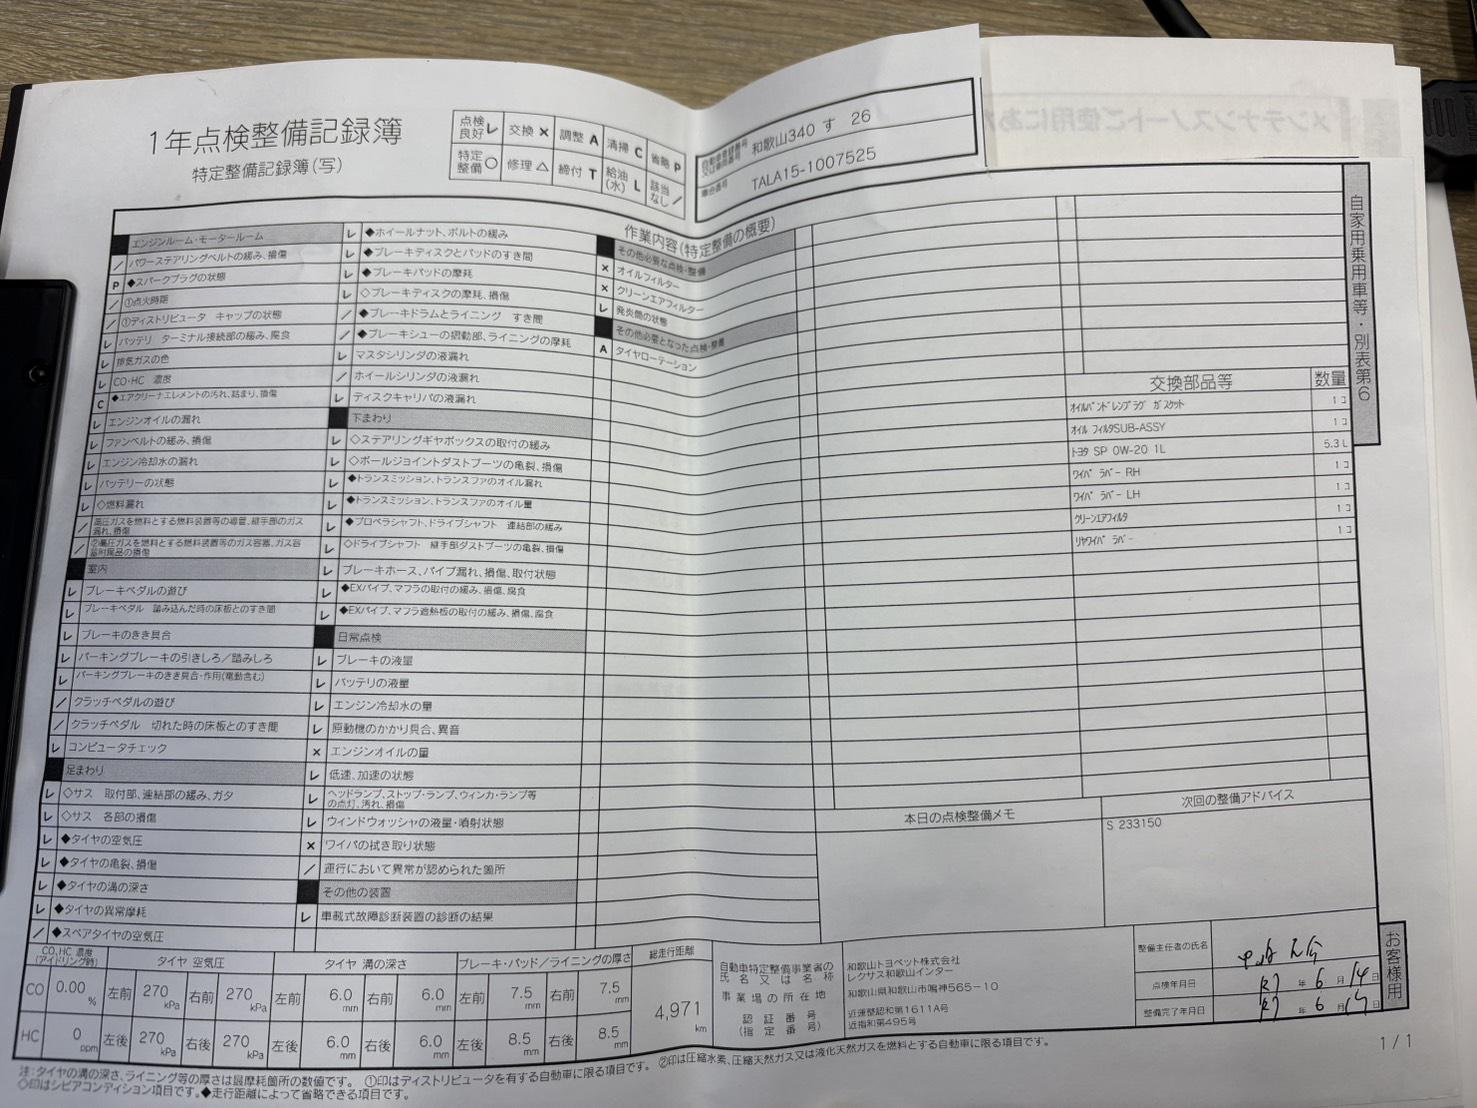 1年点検整備記録簿
特定整備記録簿(写)
点検良好 レ 交換 × 調整 A 清掃 C 省略 P
特定整備 ○ 修理 △ 締付 T 給油(水) L 該当なし /
自動車登録番号又は車両番号 和歌山340 す 26
車台番号 TALA15-1007525
自家用乗用車等・別表第6
エンジンルーム・モータールーム
/ パワーステアリングベルトの緩み、損傷
P ◆スパークプラグの状態
/ ①点火時期
/ ①ディストリビュータ キャップの状態
レ バッテリ ターミナル接続部の緩み、腐食
レ 排気ガスの色
レ CO・HC 濃度
C ◆エアクリーナエレメントの汚れ、詰まり、損傷
レ エンジンオイルの漏れ
レ ファンベルトの緩み、損傷
レ エンジン冷却水の漏れ
レ バッテリーの状態
レ ◇燃料漏れ
/ 高圧ガスを燃料とする燃料装置等の導管、継手部のガス漏れ、損傷
/ ②高圧ガスを燃料とする燃料装置等のガス容器、ガス容器附属品の損傷
室内
レ ブレーキペダルの遊び
レ ブレーキペダル 踏み込んだ時の床板とのすき間
レ ブレーキのきき具合
レ パーキングブレーキの引きしろ/踏みしろ
レ パーキングブレーキのきき具合・作用(電動含む)
/ クラッチペダルの遊び
/ クラッチペダル 切れた時の床板とのすき間
レ コンピュータチェック
足まわり
レ ◇サス 取付部、連結部の緩み、ガタ
レ ◇サス 各部の損傷
レ ◆タイヤの空気圧
レ ◆タイヤの亀裂、損傷
レ ◆タイヤの溝の深さ
レ ◆タイヤの異常摩耗
/ ◆スペアタイヤの空気圧
レ ◆ホイールナット、ボルトの緩み
レ ◆ブレーキディスクとパッドのすき間
レ ◆ブレーキパッドの摩耗
レ ◇ブレーキディスクの摩耗、損傷
/ ◆ブレーキドラムとライニング すき間
/ ◆ブレーキシューの摺動部、ライニングの摩耗
レ マスタシリンダの液漏れ
/ ホイールシリンダの液漏れ
レ ディスクキャリパの液漏れ
下まわり
レ ◇ステアリングギヤボックスの取付の緩み
レ ◇ボールジョイントダストブーツの亀裂、損傷
レ ◆トランスミッション、トランスファのオイル漏れ
レ ◆トランスミッション、トランスファのオイル量
レ ◆プロペラシャフト、ドライブシャフト 連結部の緩み
レ ◇ドライブシャフト 継手部ダストブーツの亀裂、損傷
レ ブレーキホース、パイプ漏れ、損傷、取付状態
レ ◆EXパイプ、マフラの取付の緩み、損傷、腐食
レ ◆EXパイプ、マフラ遮熱板の取付の緩み、損傷、腐食
日常点検
レ ブレーキの液量
レ バッテリの液量
レ エンジン冷却水の量
レ 原動機のかかり具合、異音
× エンジンオイルの量
レ 低速、加速の状態
レ ヘッドランプ、ストップ・ランプ、ウィンカ・ランプ等の点灯、汚れ、損傷
レ ウィンドウォッシャの液量・噴射状態
× ワイパの拭き取り状態
/ 運行において異常が認められた箇所
その他の装置
レ 車載式故障診断装置の診断の結果
作業内容(特定整備の概要)
その他必要な点検・整備
× オイルフィルター
× クリーンエアフィルター
レ 発炎筒の状態
その他必要となった点検・整備
A タイヤローテーション
交換部品等 数量
オイルパンドレンプラグ ガスケット 1コ
オイル フィルタSUB-ASSY 1コ
トヨタ SP 0W-20 1L 5.3L
ワイパ ラバー RH 1コ
ワイパ ラバー LH 1コ
クリーンエアフィルタ 1コ
リヤワイパ ラバー 1コ
本日の点検整備メモ
次回の整備アドバイス
S 233150
CO、HC 濃度(アイドリング時) タイヤ 空気圧 タイヤ 溝の深さ ブレーキ・パッド/ライニングの厚さ 総走行距離
CO 0.00 % 左前 270 kPa 右前 270 kPa 左前 6.0 mm 右前 6.0 mm 左前 7.5 mm 右前 7.5 mm
HC 0 ppm 左後 270 kPa 右後 270 kPa 左後 6.0 mm 右後 6.0 mm 左後 8.5 mm 右後 8.5 mm
4,971 km
自動車特定整備事業者の氏名又は名称 和歌山トヨペット株式会社
レクサス和歌山インター
事業場の所在地 和歌山県和歌山市鳴神565-10
認証番号 近運整認和第1611A号
(指定番号) 近指和第495号
整備主任者の氏名
点検年月日 R7 年 6 月 14 日
整備完了年月日 R7 年 6 月 日
お客様用
1/1
注:タイヤの溝の深さ、ライニング等の厚さは最摩耗箇所の数値です。 ①印はディストリビュータを有する自動車に限る項目です。 ②印は圧縮水素、圧縮天然ガス又は液化天然ガスを燃料とする自動車に限る項目です。
◇印はシビアコンディション項目です。◆走行距離によって省略できる項目です。